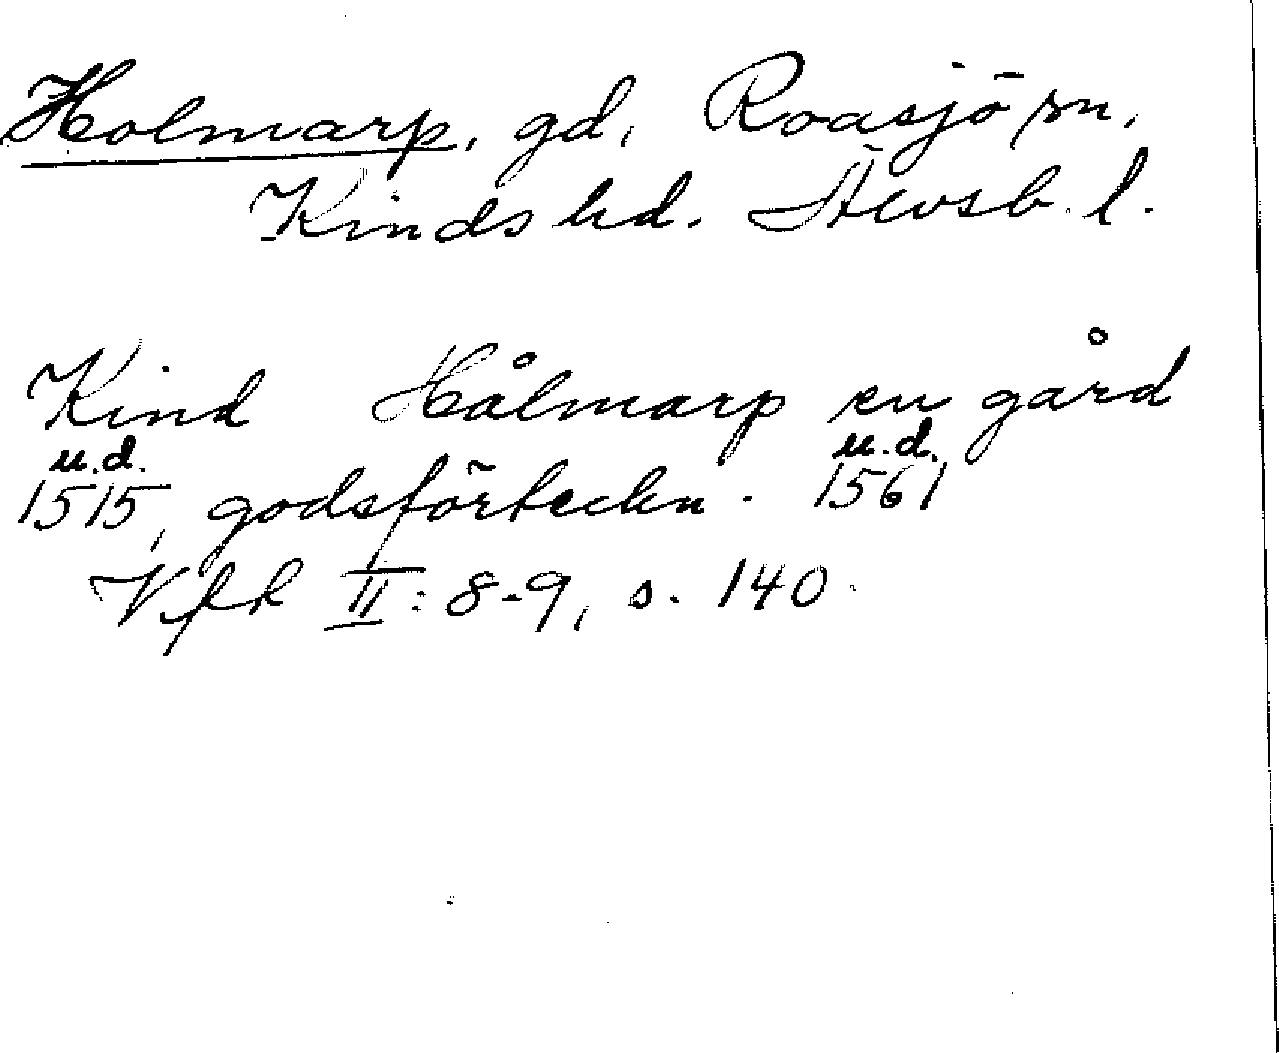 Holmarp, gd, Roasjö sn,
Kinds hd. Älvsb. l.
Kind Hålmarp en gård
u.d. u.d.
1515, godsförteckn. 1561
Vffk II: 8-9, s. 140.